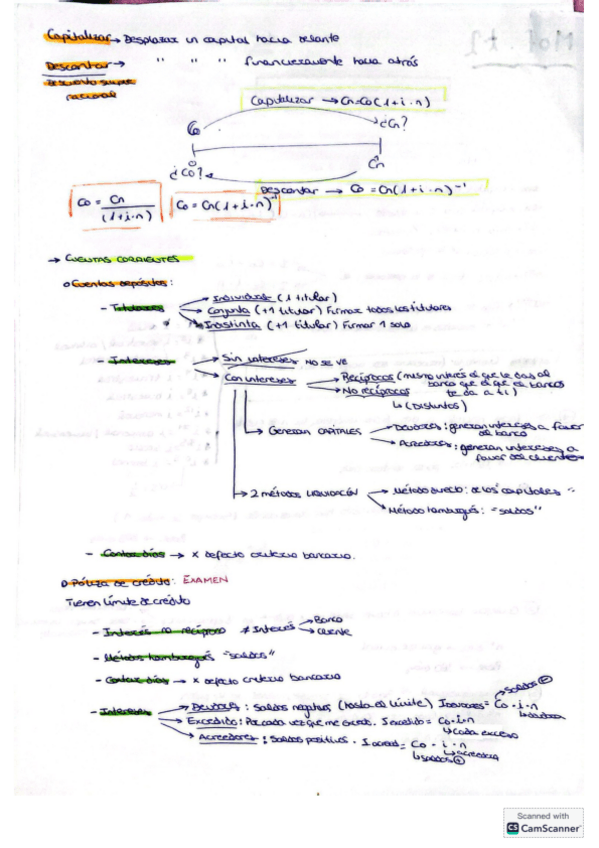 Capitalizar → Desplazar un capital hacia delante
Descontar → " " " financieramente hacia atrás
racional
Capitalizar → Cn=Co(1+i·n)
Co ¿Cn?
0 n
¿Co? Cn
Descontar → Co = Cn(1+i·n)⁻¹
Co = Cn / (1+i·n) Co = Cn(1+i·n)⁻¹
→ CUENTAS CORRIENTES
Cuentas depósitos:
- Titulares → Individual (1 titular)
→ Conjunta (+1 titular) Firmar todos los titulares
* → Indistinta (+1 titular) Firmar 1 solo
- Intereses → Sin intereses NO SE VE
→ Con intereses → Recíprocos (mismo interés el que le das al
banco que el que el banco
te da a ti)
→ No recíprocos
↳ (Distintos)
→ Generan CAPITALES → Deudores: generan intereses a favor
del banco
→ Acreedores: generan intereses a
favor del cliente
→ 2 métodos LIQUIDACIÓN → Método directo: de los capitales
→ Método hamburgués: "saldos"
- Contar días → x defecto criterio bancario.
Póliza de crédito: EXAMEN
Tienen límite de crédito
- Interés no recíproco ≠ Interés → Banco
→ Cliente
- Método hamburgués "saldos"
- Contar días → x defecto criterio bancario
- Intereses → Deudores: Saldos negativos (hasta el límite) Ideudores = Co·i·n
→ saldos ⊖
↳ deudora
→ Excedido: Por cada vez que me excedo. Iexcedido = Co·i·n
↳ cada exceso
→ Acreedores: Saldos positivos. Iacreed = Co·i·n
↳ acreedora
↳ saldos ⊕
Scanned with
CS CamScanner